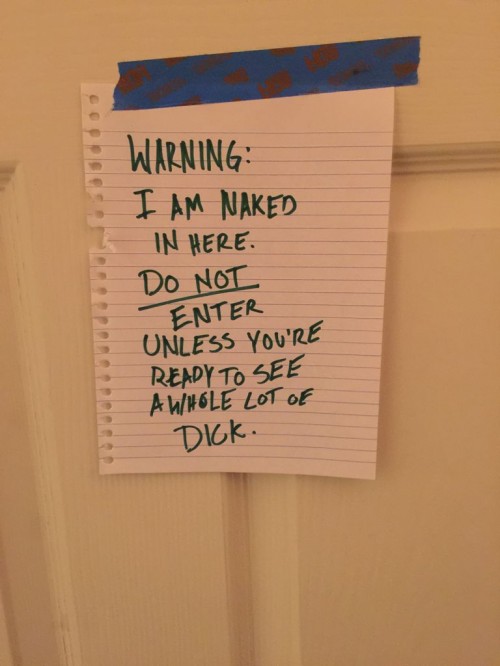 WARNING:
I AM NAKED
IN HERE.
DO NOT
ENTER
UNLESS YOU'RE
READY TO SEE
A WHOLE LOT OF
DICK.